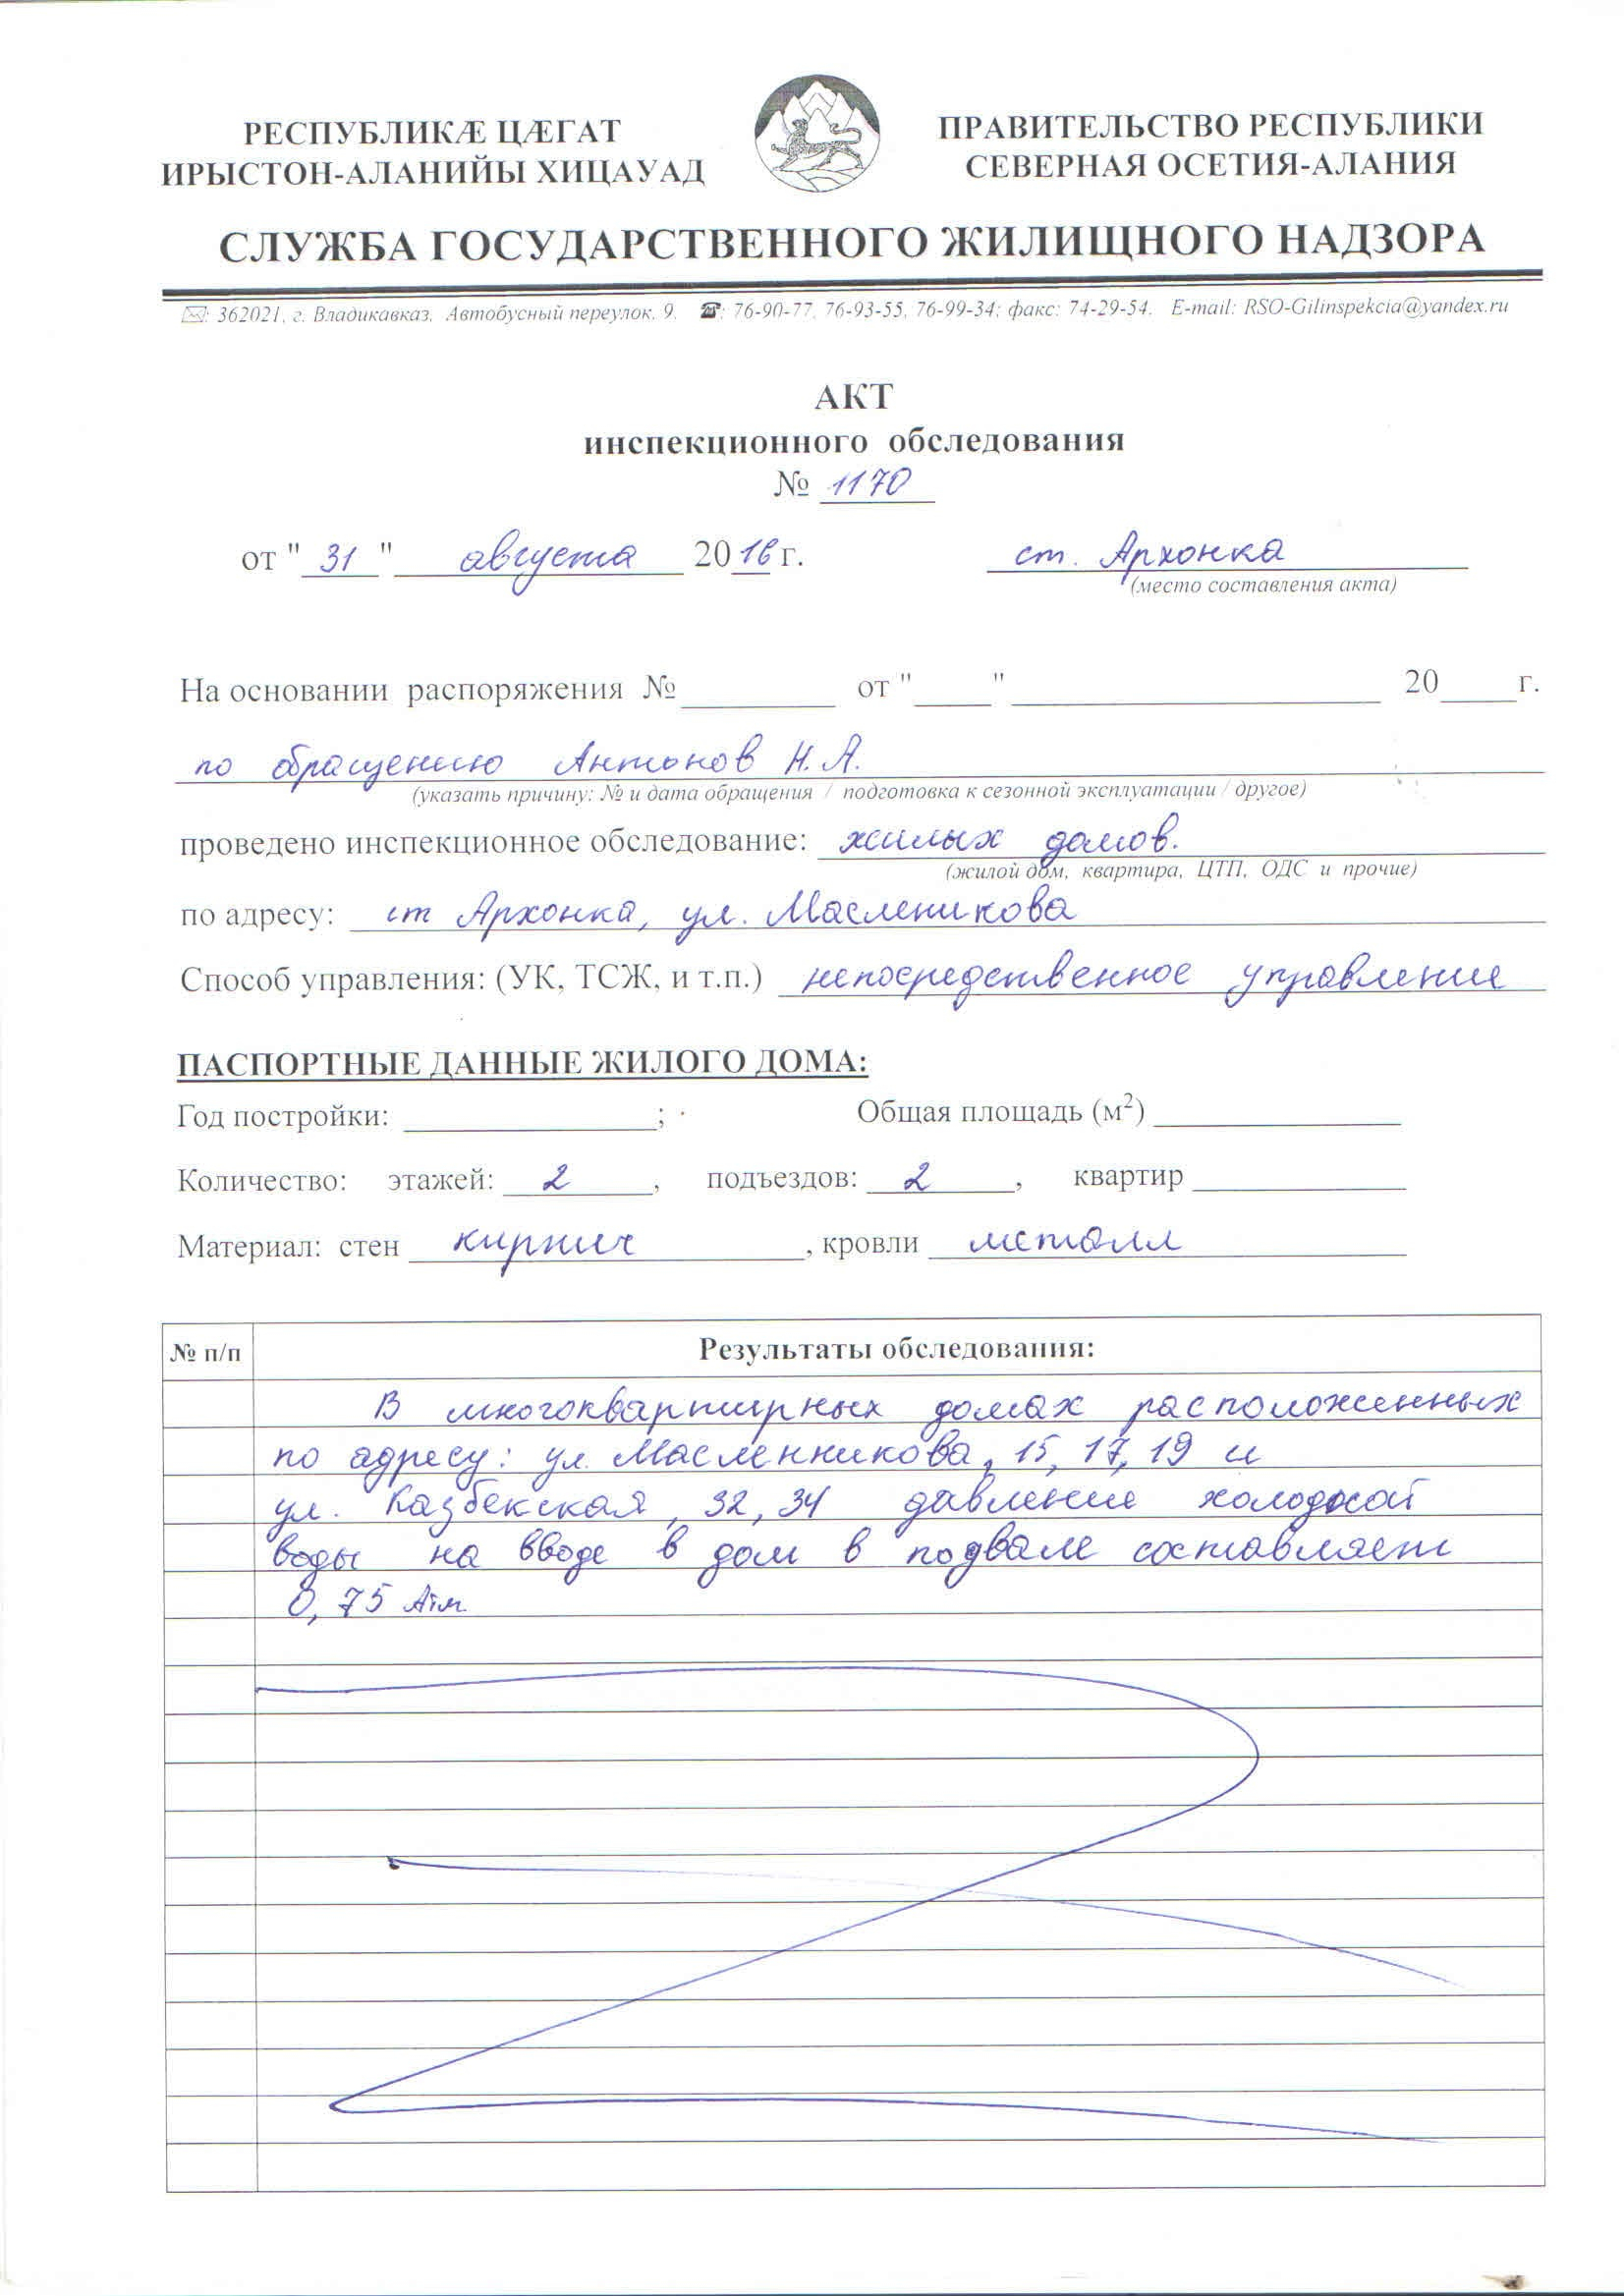 РЕСПУБЛИКÆ ЦÆГАТ
ИРЫСТОН-АЛАНИЙЫ ХИЦАУАД
ПРАВИТЕЛЬСТВО РЕСПУБЛИКИ
СЕВЕРНАЯ ОСЕТИЯ-АЛАНИЯ
СЛУЖБА ГОСУДАРСТВЕННОГО ЖИЛИЩНОГО НАДЗОРА
✉: 362021, г. Владикавказ, Автобусный переулок, 9. ☎: 76-90-77, 76-93-55, 76-99-34; факс: 74-29-54. E-mail: RSO-Gilinspekcia@yandex.ru
АКТ
инспекционного обследования
№ 1170
от " 31 " августа 2016 г. ст. Архонка
(место составления акта)
На основании распоряжения № ________ от "____" ____________ 20____г.
по обращению Антонов Н.А.
(указать причину: № и дата обращения / подготовка к сезонной эксплуатации / другое)
проведено инспекционное обследование: жилых домов.
(жилой дом, квартира, ЦТП, ОДС и прочие)
по адресу: ст Архонка, ул. Маслениκова
Способ управления: (УК, ТСЖ, и т.п.) непосредственное управление
ПАСПОРТНЫЕ ДАННЫЕ ЖИЛОГО ДОМА:
Год постройки: ____________; Общая площадь (м²) ____________
Количество: этажей: 2, подъездов: 2, квартир ____________
Материал: стен кирпич, кровли металл
№ п/п Результаты обследования:
В многоквартирных домах расположенных
по адресу: ул. Масленникова, 15, 17, 19 и
ул. Казбекская, 32, 34 давление холодной
воды на вводе в дом в подвале составляет
0,75 Атм.